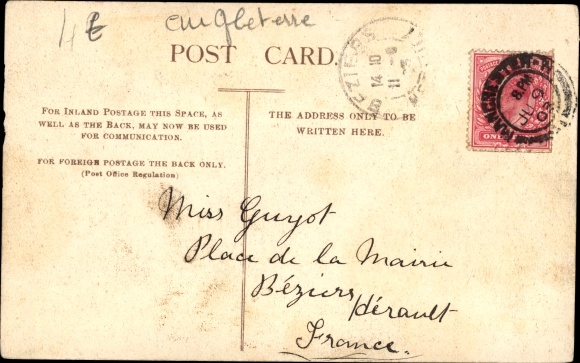 4 £
angleterre
POST CARD.
BEZIERS
14 10
11 -
FOR INLAND POSTAGE THIS SPACE, AS
WELL AS THE BACK, MAY NOW BE USED
FOR COMMUNICATION.
FOR FOREIGN POSTAGE THE BACK ONLY.
(Post Office Regulation)
THE ADDRESS ONLY TO BE
WRITTEN HERE.
MANCHESTER
8 PM
JU 9
03
ONE
Miss Guyot
Place de la Mairie
Béziers
Hérault
France.